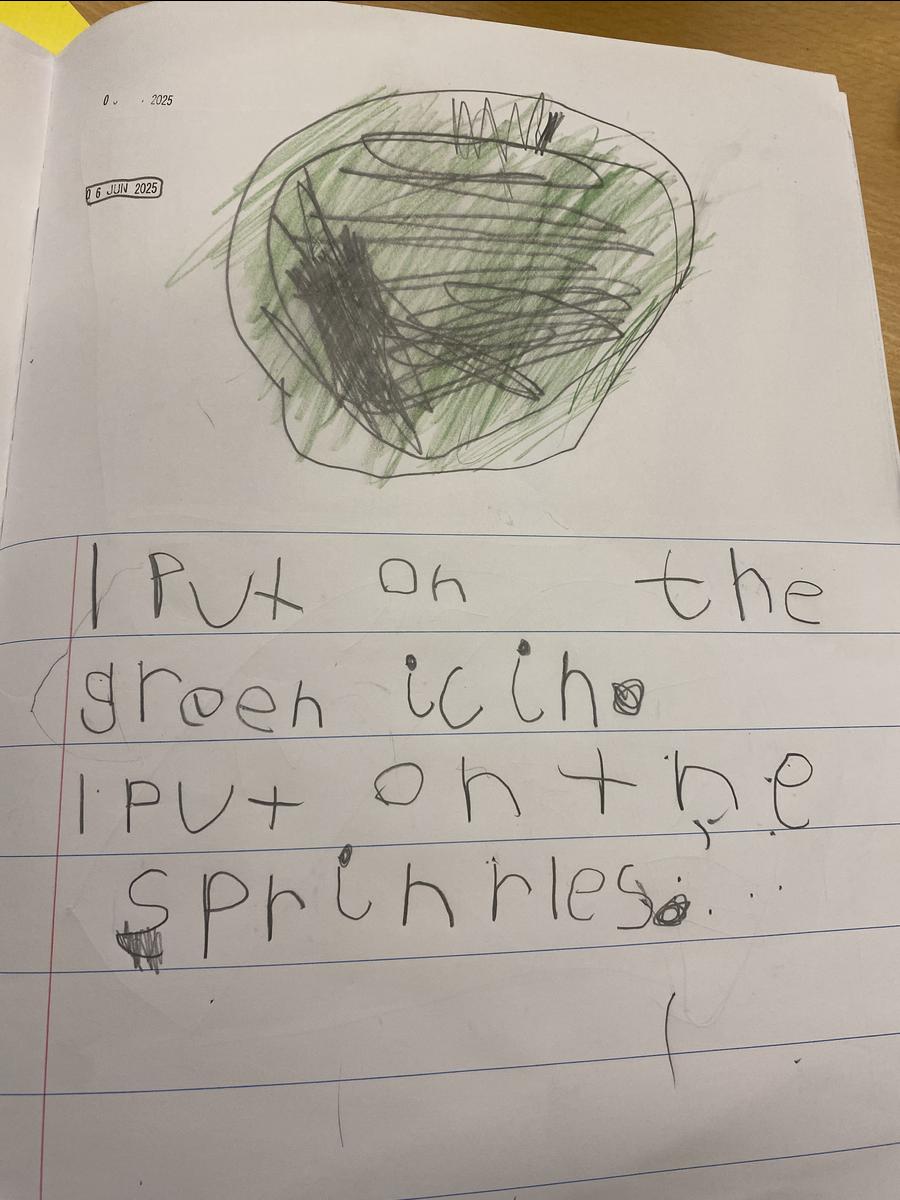 2025
06 JUN 2025
I Put on the
groen icin.
I PUt on the
sprinrles.